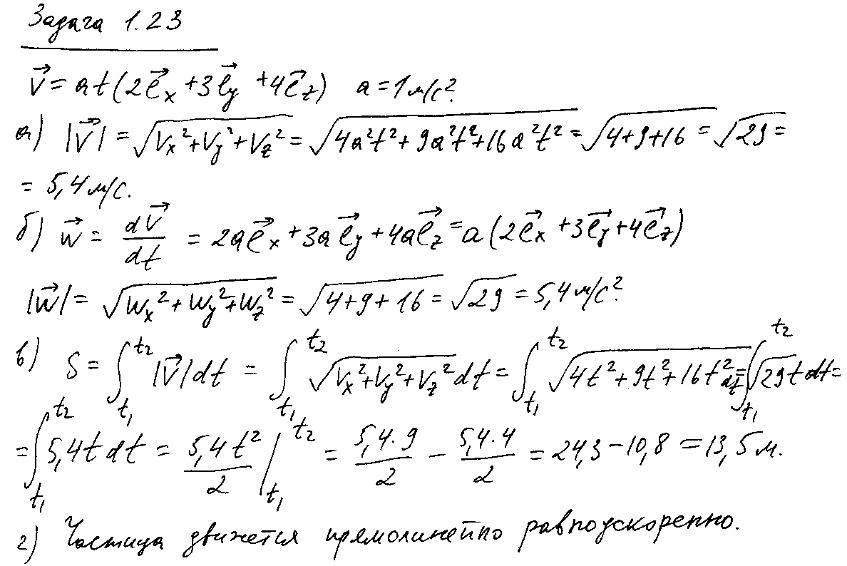 Задача 1.23
v⃗ = at(2e⃗x + 3e⃗y + 4e⃗z)   a = 1 м/с².
а) |v⃗| = √(Vx² + Vy² + Vz²) = √(4a²t² + 9a²t² + 16a²t²) = √(4+9+16) = √29 =
= 5,4 м/с.
б) w⃗ = dv⃗/dt = 2ae⃗x + 3ae⃗y + 4ae⃗z = a(2e⃗x + 3e⃗y + 4e⃗z)
|w⃗| = √(Wx² + Wy² + Wz²) = √(4+9+16) = √29 = 5,4 м/с².
в) S = ∫_{t1}^{t2} |v⃗|dt = ∫_{t1}^{t2} √(Vx² + Vy² + Vz²) dt = ∫_{t1}^{t2} √(4t² + 9t² + 16t²) dt = ∫_{t1}^{t2} √29 t dt =
= ∫_{t1}^{t2} 5,4 t dt = 5,4 t²/2 |_{t1}^{t2} = 5,4·9/2 − 5,4·4/2 = 24,3 − 10,8 = 13,5 м.
г) Частица движется прямолинейно равноускоренно.